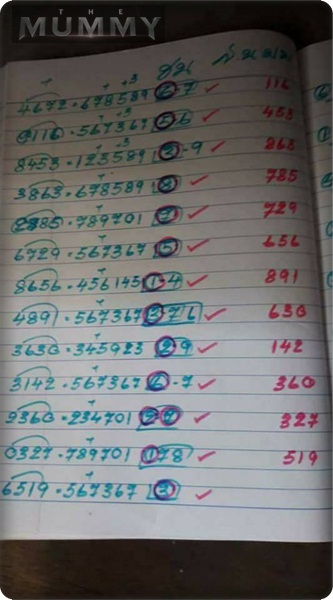 THE
MUMMY
ชน ก่น บน
4672 - 678589 6 - 7 ✓ 116
0116 - 567367 56 ✓ 453
8453 - 123589 3 - 9 ✓ 863
3863 - 678589 8 ✓ 785
2785 - 789701 7 ✓ 729
6729 - 567367 5 ✓ 656
8656 - 456145 1 - 4 ✓ 891
4891 - 567367 376 ✓ 630
3630 - 345923 29 ✓ 142
3142 - 567367 6 - 7 ✓ 360
9360 - 234701 27 ✓ 327
0327 - 789701 178 ✓ 519
6519 - 567367 3 ✓